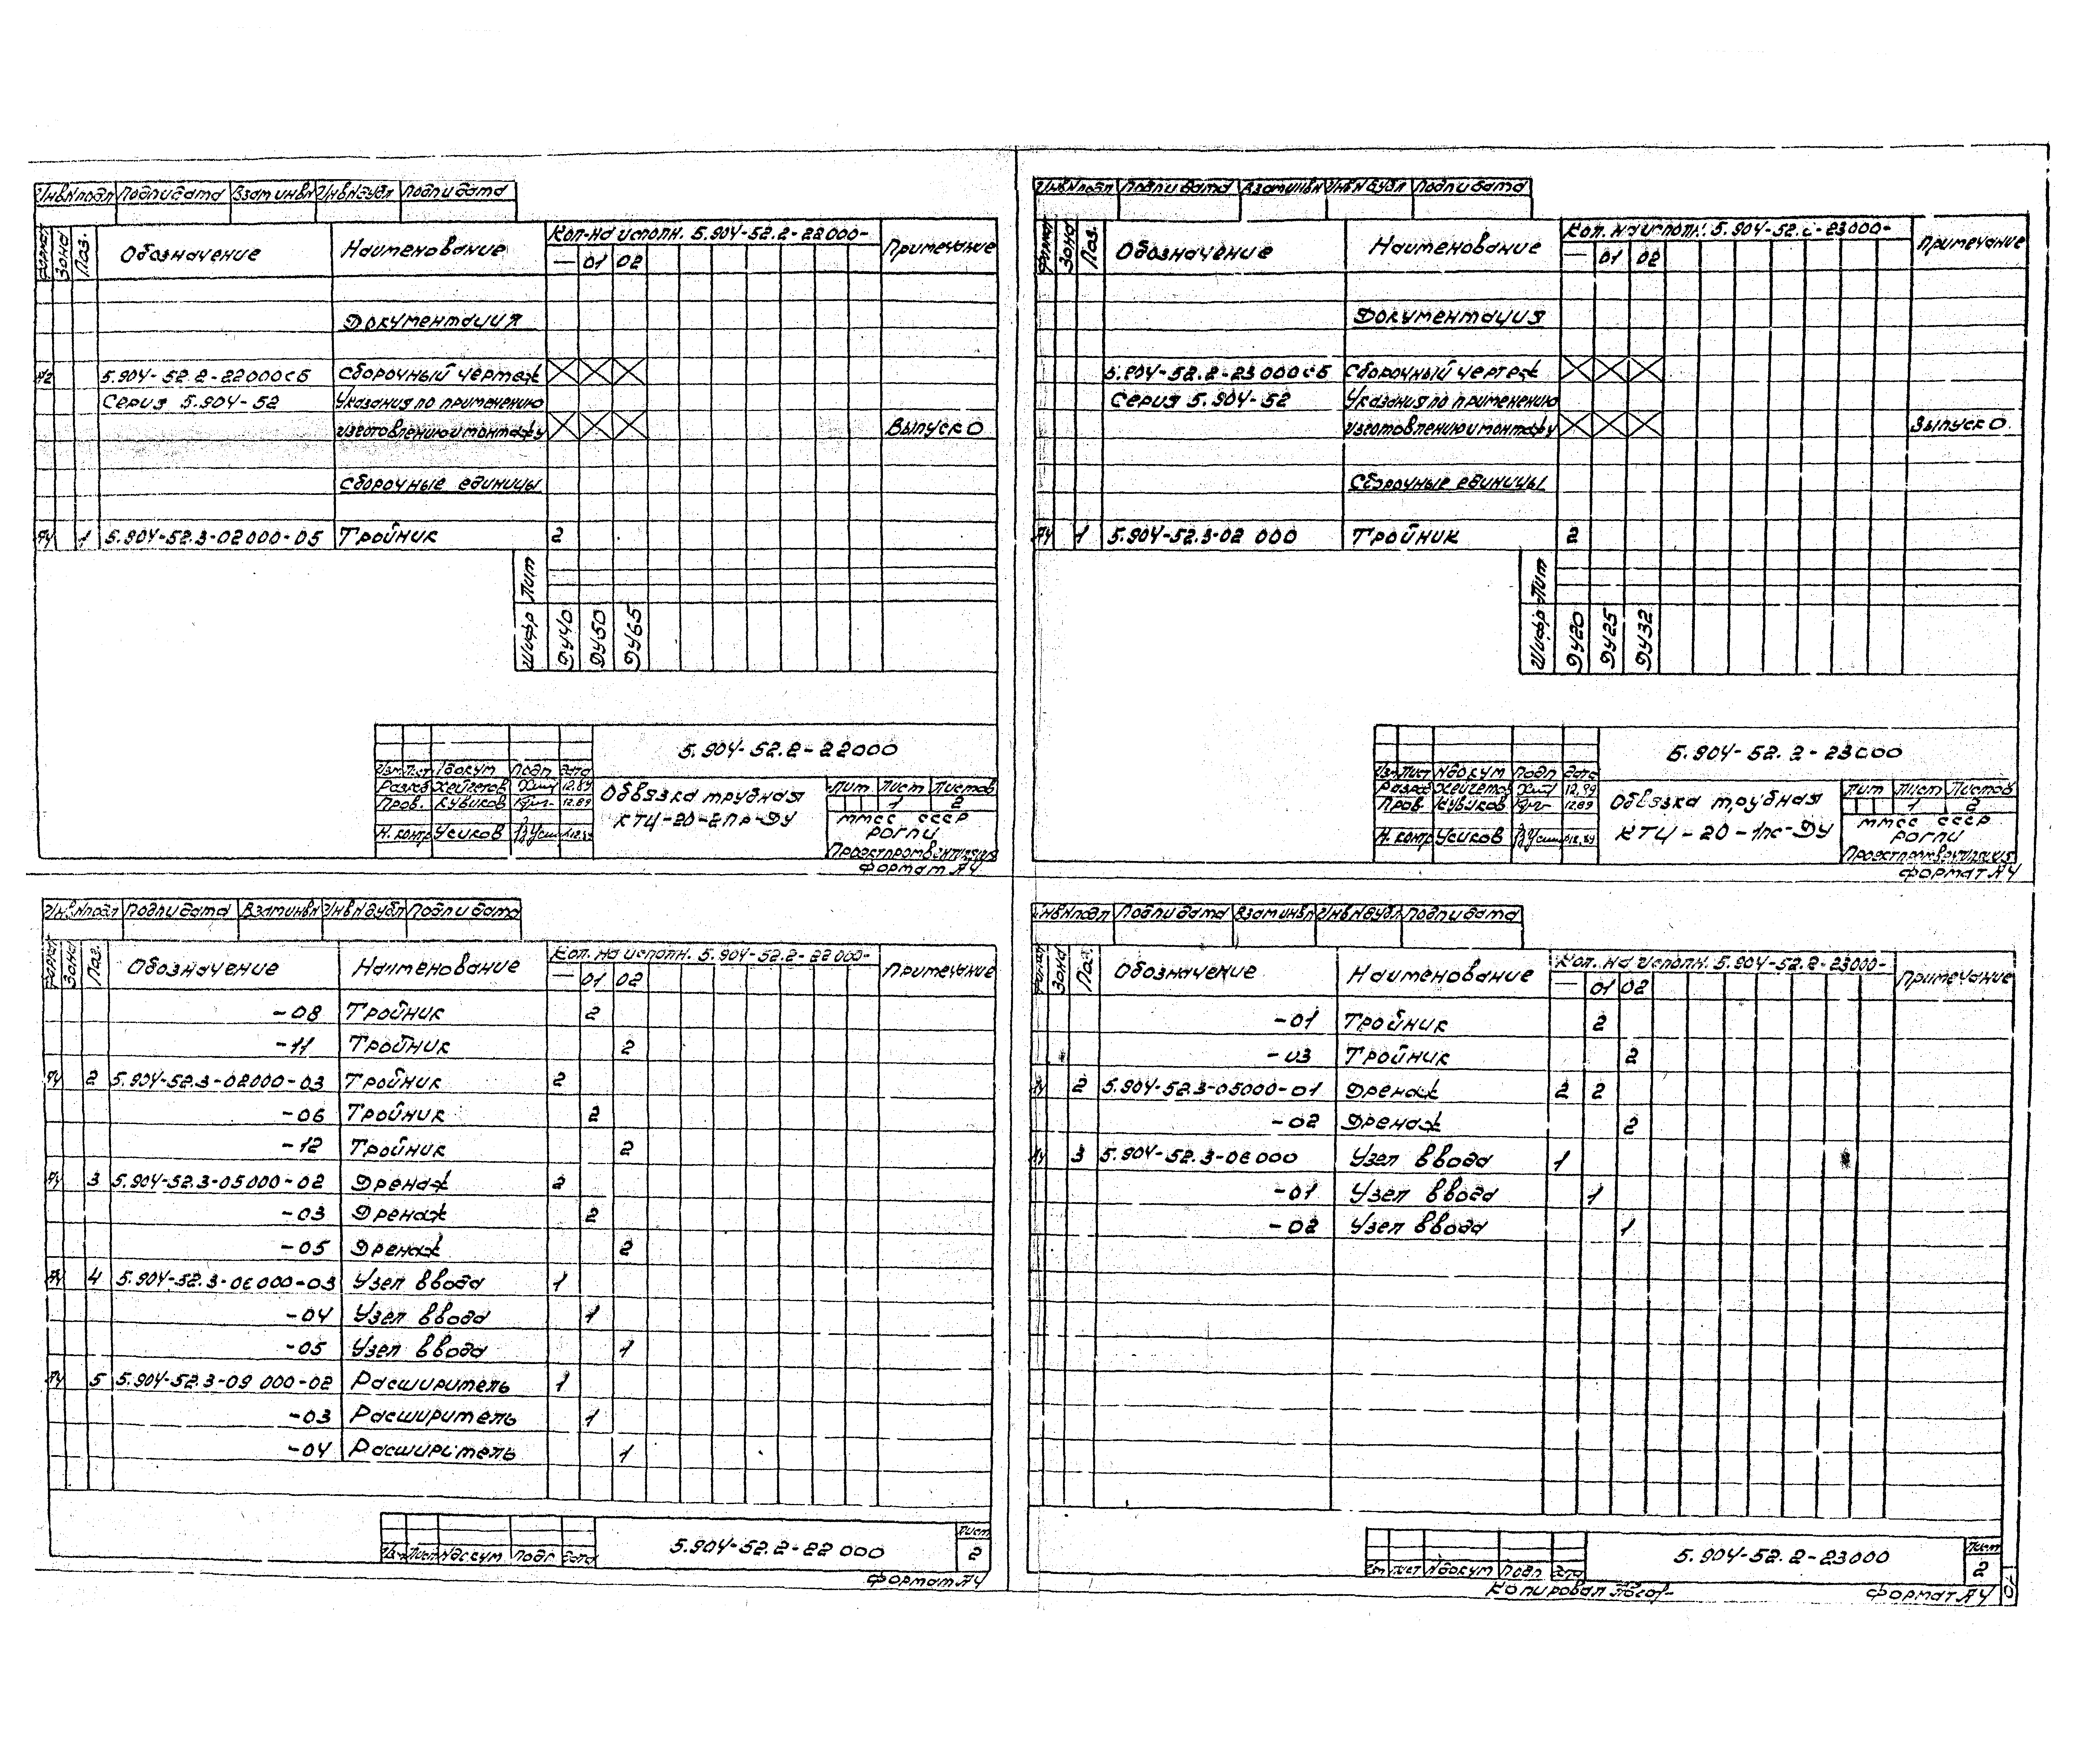 Инв.№подл Подп и дата Взам инв№ Инв№дубл Подп и дата
Формат Зона Поз. Обозначение Наименование Кол-на исполн. 5.904-52.2-22000- Примечание
— 01 02
Документация
А2 5.904-52.2-22000СБ Сборочный чертеж
Серия 5.904-52 Указания по применению
изготовлению и монтажу Выпуск 0
Сборочные единицы
А4 1 5.904-52.3-02000-05 Тройник 2
Лит
Шифр ДУ40 ДУ50 ДУ65
5.904-52.2-22000
Изм Лист №докум Подп Дата
Разраб Хейгетов 12.89
Пров. Кубиков 12.89
Н.контр Усиков 12.89
Обвязка трубная
КТЦ-20-2пр-ДУ
Лит Лист Листов
1 2
ММСС СССР
РОГПИ
Проектпромвентиляция
Формат А4
Инв№подл Подп и дата Взам инв№ Инв№дубл Подп и дата
Формат Зона Поз. Обозначение Наименование Кол. на исполн. 5.904-52.2-23000- Примечание
— 01 02
Документация
5.904-52.2-23000СБ Сборочный чертеж
Серия 5.904-52 Указания по применению
изготовлению и монтажу Выпуск 0.
Сборочные единицы
А4 1 5.904-52.3-02 000 Тройник 2
Шифр Лит
ДУ20 ДУ25 ДУ32
5.904-52.2-23000
Изм Лист №докум Подп Дата
Разраб Хейгетов 12.89
Пров. Кубиков 12.89
Н.контр Усиков 12.89
Обвязка трубная
КТЦ-20-1пс-ДУ
Лит Лист Листов
1 2
ММСС СССР
РОГПИ
Проектпромвентиляция
Формат А4
Инв.№подл Подп и дата Взам инв№ Инв№дубл Подп и дата
Формат Зона Поз. Обозначение Наименование Кол. на исполн. 5.904-52.2-22000- Примечание
— 01 02
-08 Тройник 2
-11 Тройник 2
А4 2 5.904-52.3-02000-03 Тройник 2
-06 Тройник 2
-12 Тройник 2
А4 3 5.904-52.3-05000-02 Дренаж 2
-03 Дренаж 2
-05 Дренаж 2
А4 4 5.904-52.3-06000-03 Узел ввода 1
-04 Узел ввода 1
-05 Узел ввода 1
А4 5 5.904-52.3-09 000-02 Расширитель 1
-03 Расширитель 1
-04 Расширитель 1
Изм Лист №докум Подп Дата
5.904-52.2-22 000
Лист
2
Формат А4
Инв№подл Подп и дата Взам инв№ Инв№дубл Подп и дата
Формат Зона Поз. Обозначение Наименование Кол. на исполн. 5.904-52.2-23000- Примечание
— 01 02
-01 Тройник 2
-03 Тройник 2
А4 2 5.904-52.3-05000-01 Дренаж 2 2
-02 Дренаж 2
А4 3 5.904-52.3-06000 Узел ввода 1
-01 Узел ввода 1
-02 Узел ввода 1
Изм Лист №докум Подп Дата
5.904-52.2-23000
Лист
2
Копировал Формат А4